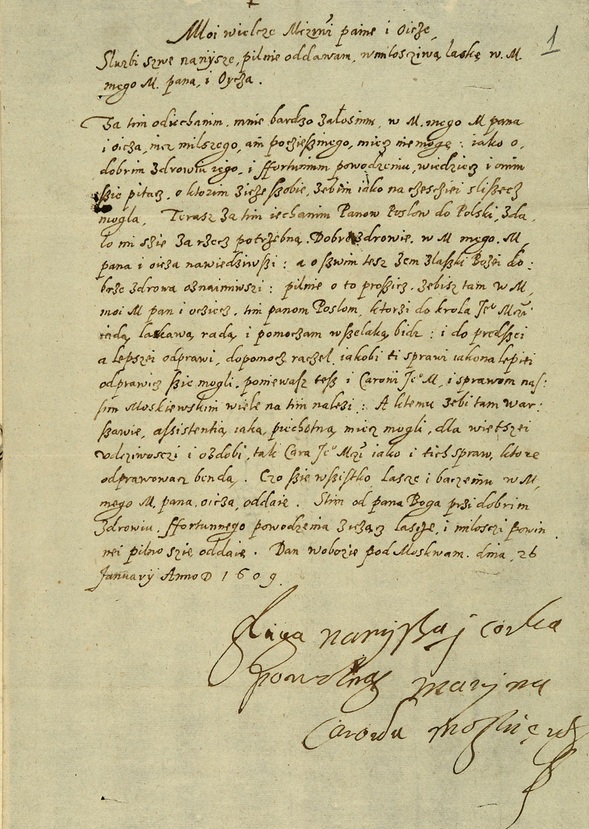 1
Moi wielcze Mcziwi panie i Oicze,
Służbi swe naniższe, pilnie oddawam, w miłosziwą łaskę w. M.
mego M. pana, i Oycża.
Za tim odiechanim, mnie bardzo załosnim, w M. mego M pana
i oicza, nicz milszego, ani pocziesznego, miecz niemogę: iako o,
dobrim zdrowiu iego, i ffortunnim powodzeniu, wiedziecz i onim
szie pitacz, o ktorim ziczę szobie, żebim iako na czescziei sliszecz
mogla, Terasz za tim iechanim Panow Posłow do Polski, zda,
ło mi szie za rzecz potrzebną. Dobre zdrowie, w M mego. M,
pana i oicza nawiedziwszi: a o szwim tesz żem z laski Bożei do:
brze zdrowa oznaimiwszi: pilnie o to proszicz, żebisz tam w M,
moi M pan i ocziecz, tim panom Posłom, ktorzi do krola Jeº Mczi
iadą, laskawą radą i pomoczam wszelaką bidz: i do prędszei
a lepszei odprawi, dopomocz raczel, iakobi ti sprawi iakonalepiei
odprawicz szie mogli, poniewasz tesz i Carowi Jeº M, i sprawom nas:
sim Moskiewskim wiele na tim należi: A ktemu żebi tam war:
szawie, assistentią iaką, piechotną, miecz mogli, dla wietszei
udcziwosczi i ozdobi, tak Cara Jeº Mczi iako i tich spraw, ktore
odprawowacz bendą. Czo szie wszistko lascze i baczeniu w M,
mego M, pana, oicza, oddaię. Stim od pana Boga przi dobrim
zdrowiu, ffortunnego powodzenia ziczącz lascze, i milosczi powin
nei pilno szię oddaię. Dan w obozie pod Moskwam. dnia, 26
Januarÿ Anno D 1609
sluga naniższa i corka
powolna Maryna
Carowa Moskiewska